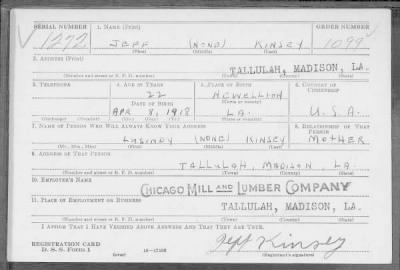 SERIAL NUMBER 1. NAME (Print) ORDER NUMBER
1272 JEFF (NONE) KINSEY 1099
(First) (Middle) (Last)
2. ADDRESS (Print)
TALLULAH, MADISON, LA.
(Number and street or R. F. D. number) (Town) (County) (State)
3. TELEPHONE 4. AGE IN YEARS 5. PLACE OF BIRTH 6. COUNTRY OF CITIZENSHIP
22 NEWELLTON
DATE OF BIRTH (Town or county)
APR 8, 1918 LA. U.S.A.
(Exchange) (Number) (Mo.) (Day) (Yr.) (State or country)
7. NAME OF PERSON WHO WILL ALWAYS KNOW YOUR ADDRESS 8. RELATIONSHIP OF THAT PERSON
LUSINDY (NONE) KINSEY MOTHER
(Mr., Mrs., Miss) (First) (Middle) (Last)
9. ADDRESS OF THAT PERSON
TALLULAH, MADISON, LA
(Number and street or R. F. D. number) (Town) (County) (State)
10. EMPLOYER'S NAME
CHICAGO MILL AND LUMBER COMPANY
11. PLACE OF EMPLOYMENT OR BUSINESS
TALLULAH, MADISON, LA.
(Number and street or R. F. D. number) (Town) (County) (State)
I AFFIRM THAT I HAVE VERIFIED ABOVE ANSWERS AND THAT THEY ARE TRUE.
REGISTRATION CARD
D. S. S. Form 1 (over) Jeff Kinsey